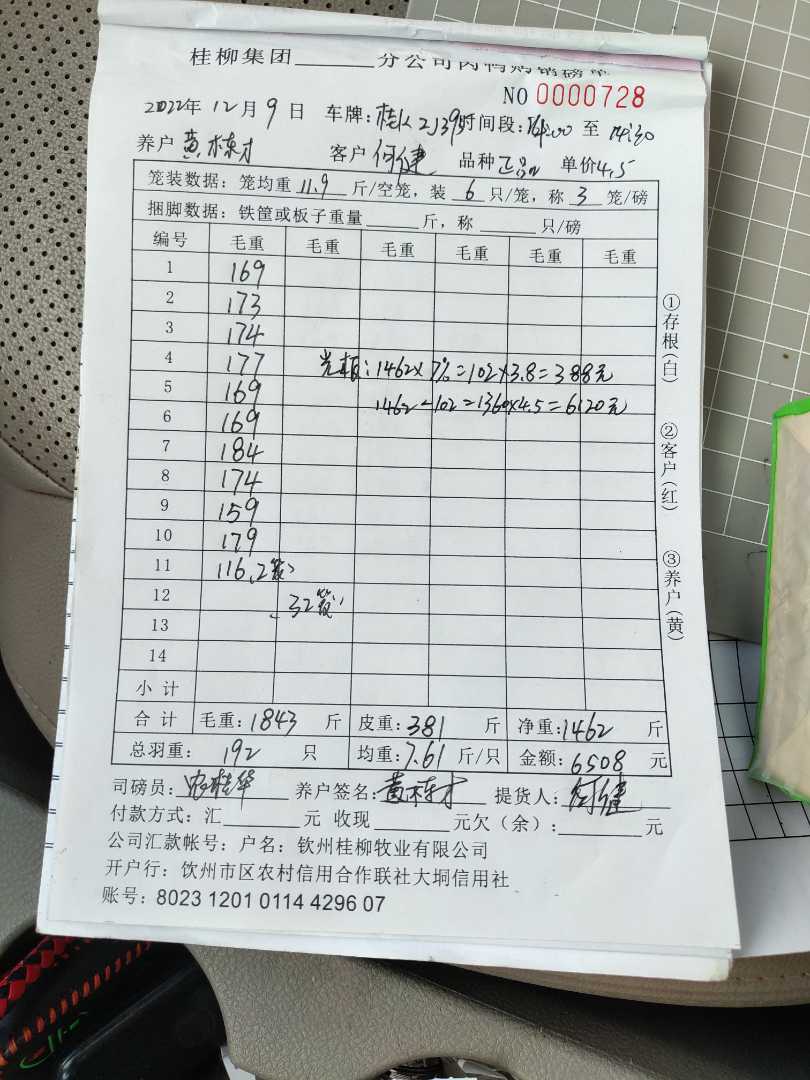 桂柳集团______分公司肉鸭购销磅单
NO 0000728
2022年 12月 9日 车牌: 时间段:14:00 至 14:30
养户 黄林才 客户 何健 品种 正品 单价4.5
笼装数据:笼均重 11.9 斤/空笼,装 6 只/笼,称 3 笼/磅
捆脚数据:铁筐或板子重量______斤,称______只/磅
编号 毛重 毛重 毛重 毛重 毛重 毛重
1 169
2 173
3 174
4 177 1462×7%=102×3.8=388元
5 169 1462-102=1360×4.5=6120元
6 169
7 184
8 174
9 159
10 179
11 116,2笼
12 32笼
13
14
小计
合计 毛重:1843 斤 皮重:381 斤 净重:1462 斤
总羽重: 192 只 均重:7.61 斤/只 金额:6508 元
司磅员: 养户签名:黄林才 提货人:何健
付款方式:汇______元 收现______元欠(余):______元
公司汇款帐号:户名:钦州桂柳牧业有限公司
开户行:钦州市区农村信用合作联社大垌信用社
账号:8023 1201 0114 4296 07
①存根(白)
②客户(红)
③养户(黄)